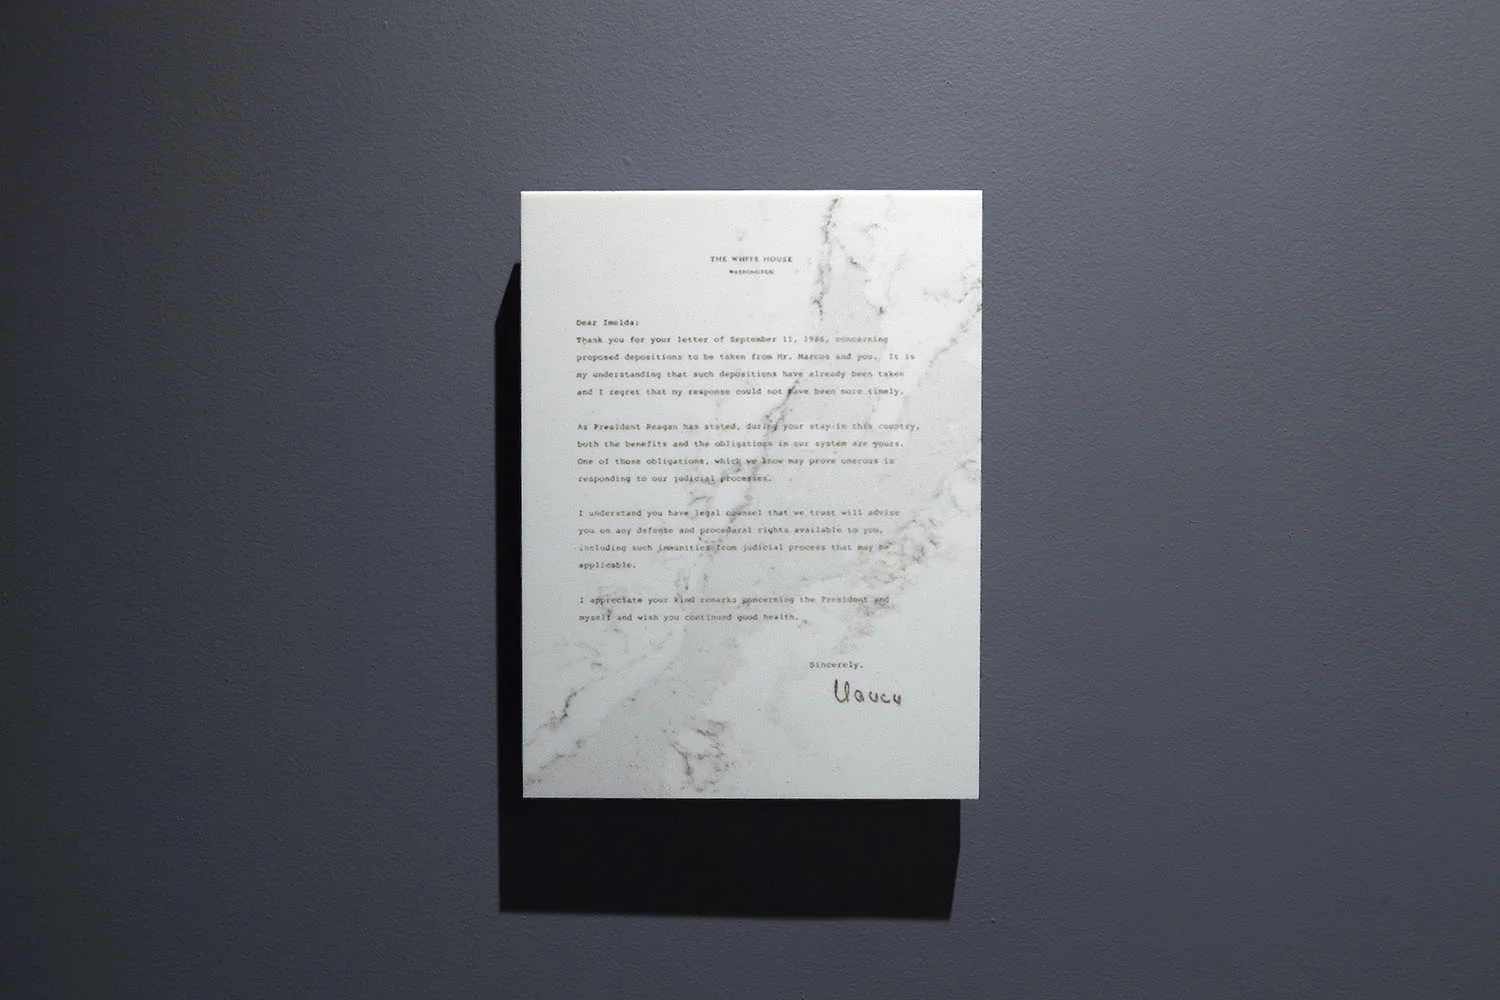 THE WHITE HOUSE
WASHINGTON
Dear Imelda:
Thank you for your letter of September 11, 1986, concerning
proposed depositions to be taken from Mr. Marcos and you. It is
my understanding that such depositions have already been taken
and I regret that my response could not have been more timely.
As President Reagan has stated, during your stay in this country,
both the benefits and the obligations in our system are yours.
One of those obligations, which we know may prove onerous is
responding to our judicial processes.
I understand you have legal counsel that we trust will advise
you on any defense and procedural rights available to you,
including such immunities from judicial process that may be
applicable.
I appreciate your kind remarks concerning the President and
myself and wish you continued good health.
Sincerely,
Nancy